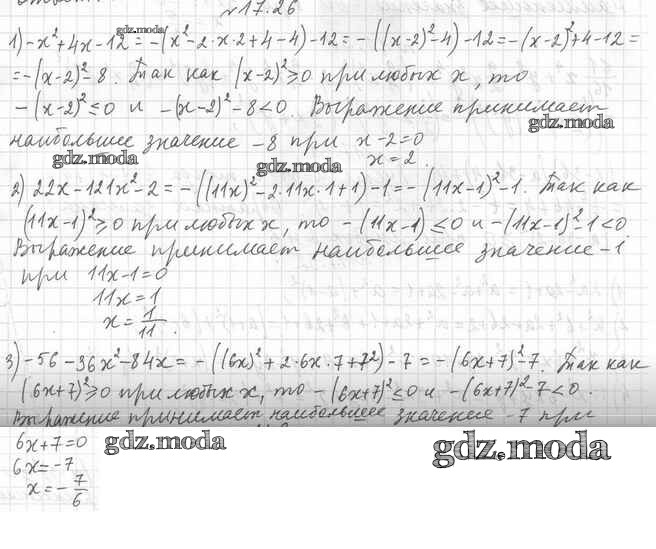 №17.26
gdz.moda
1) -x²+4x-12 = -(x²-2·x·2+4-4)-12 = -((x-2)²-4)-12 = -(x-2)²+4-12 =
= -(x-2)²-8. Так как (x-2)²≥0 при любых x, то
-(x-2)²≤0 и -(x-2)²-8<0. Выражение принимает
gdz.moda
наибольшее значение -8 при x-2=0
gdz.moda gdz.moda x=2.
2) 22x-121x²-2 = -((11x)²-2·11x·1+1)-1 = -(11x-1)²-1. Так как
(11x-1)²≥0 при любых x, то -(11x-1)≤0 и -(11x-1)²-1<0.
Выражение принимает наибольшее значение -1
при 11x-1=0
11x=1
x=1/11.
3) -56-36x²-84x = -((6x)²+2·6x·7+7²)-7 = -(6x+7)²-7. Так как
(6x+7)²≥0 при любых x, то -(6x+7)²≤0 и -(6x+7)²-7<0.
Выражение принимает наибольшее значение -7 при
6x+7=0 gdz.moda gdz.moda
6x=-7
x=-7/6